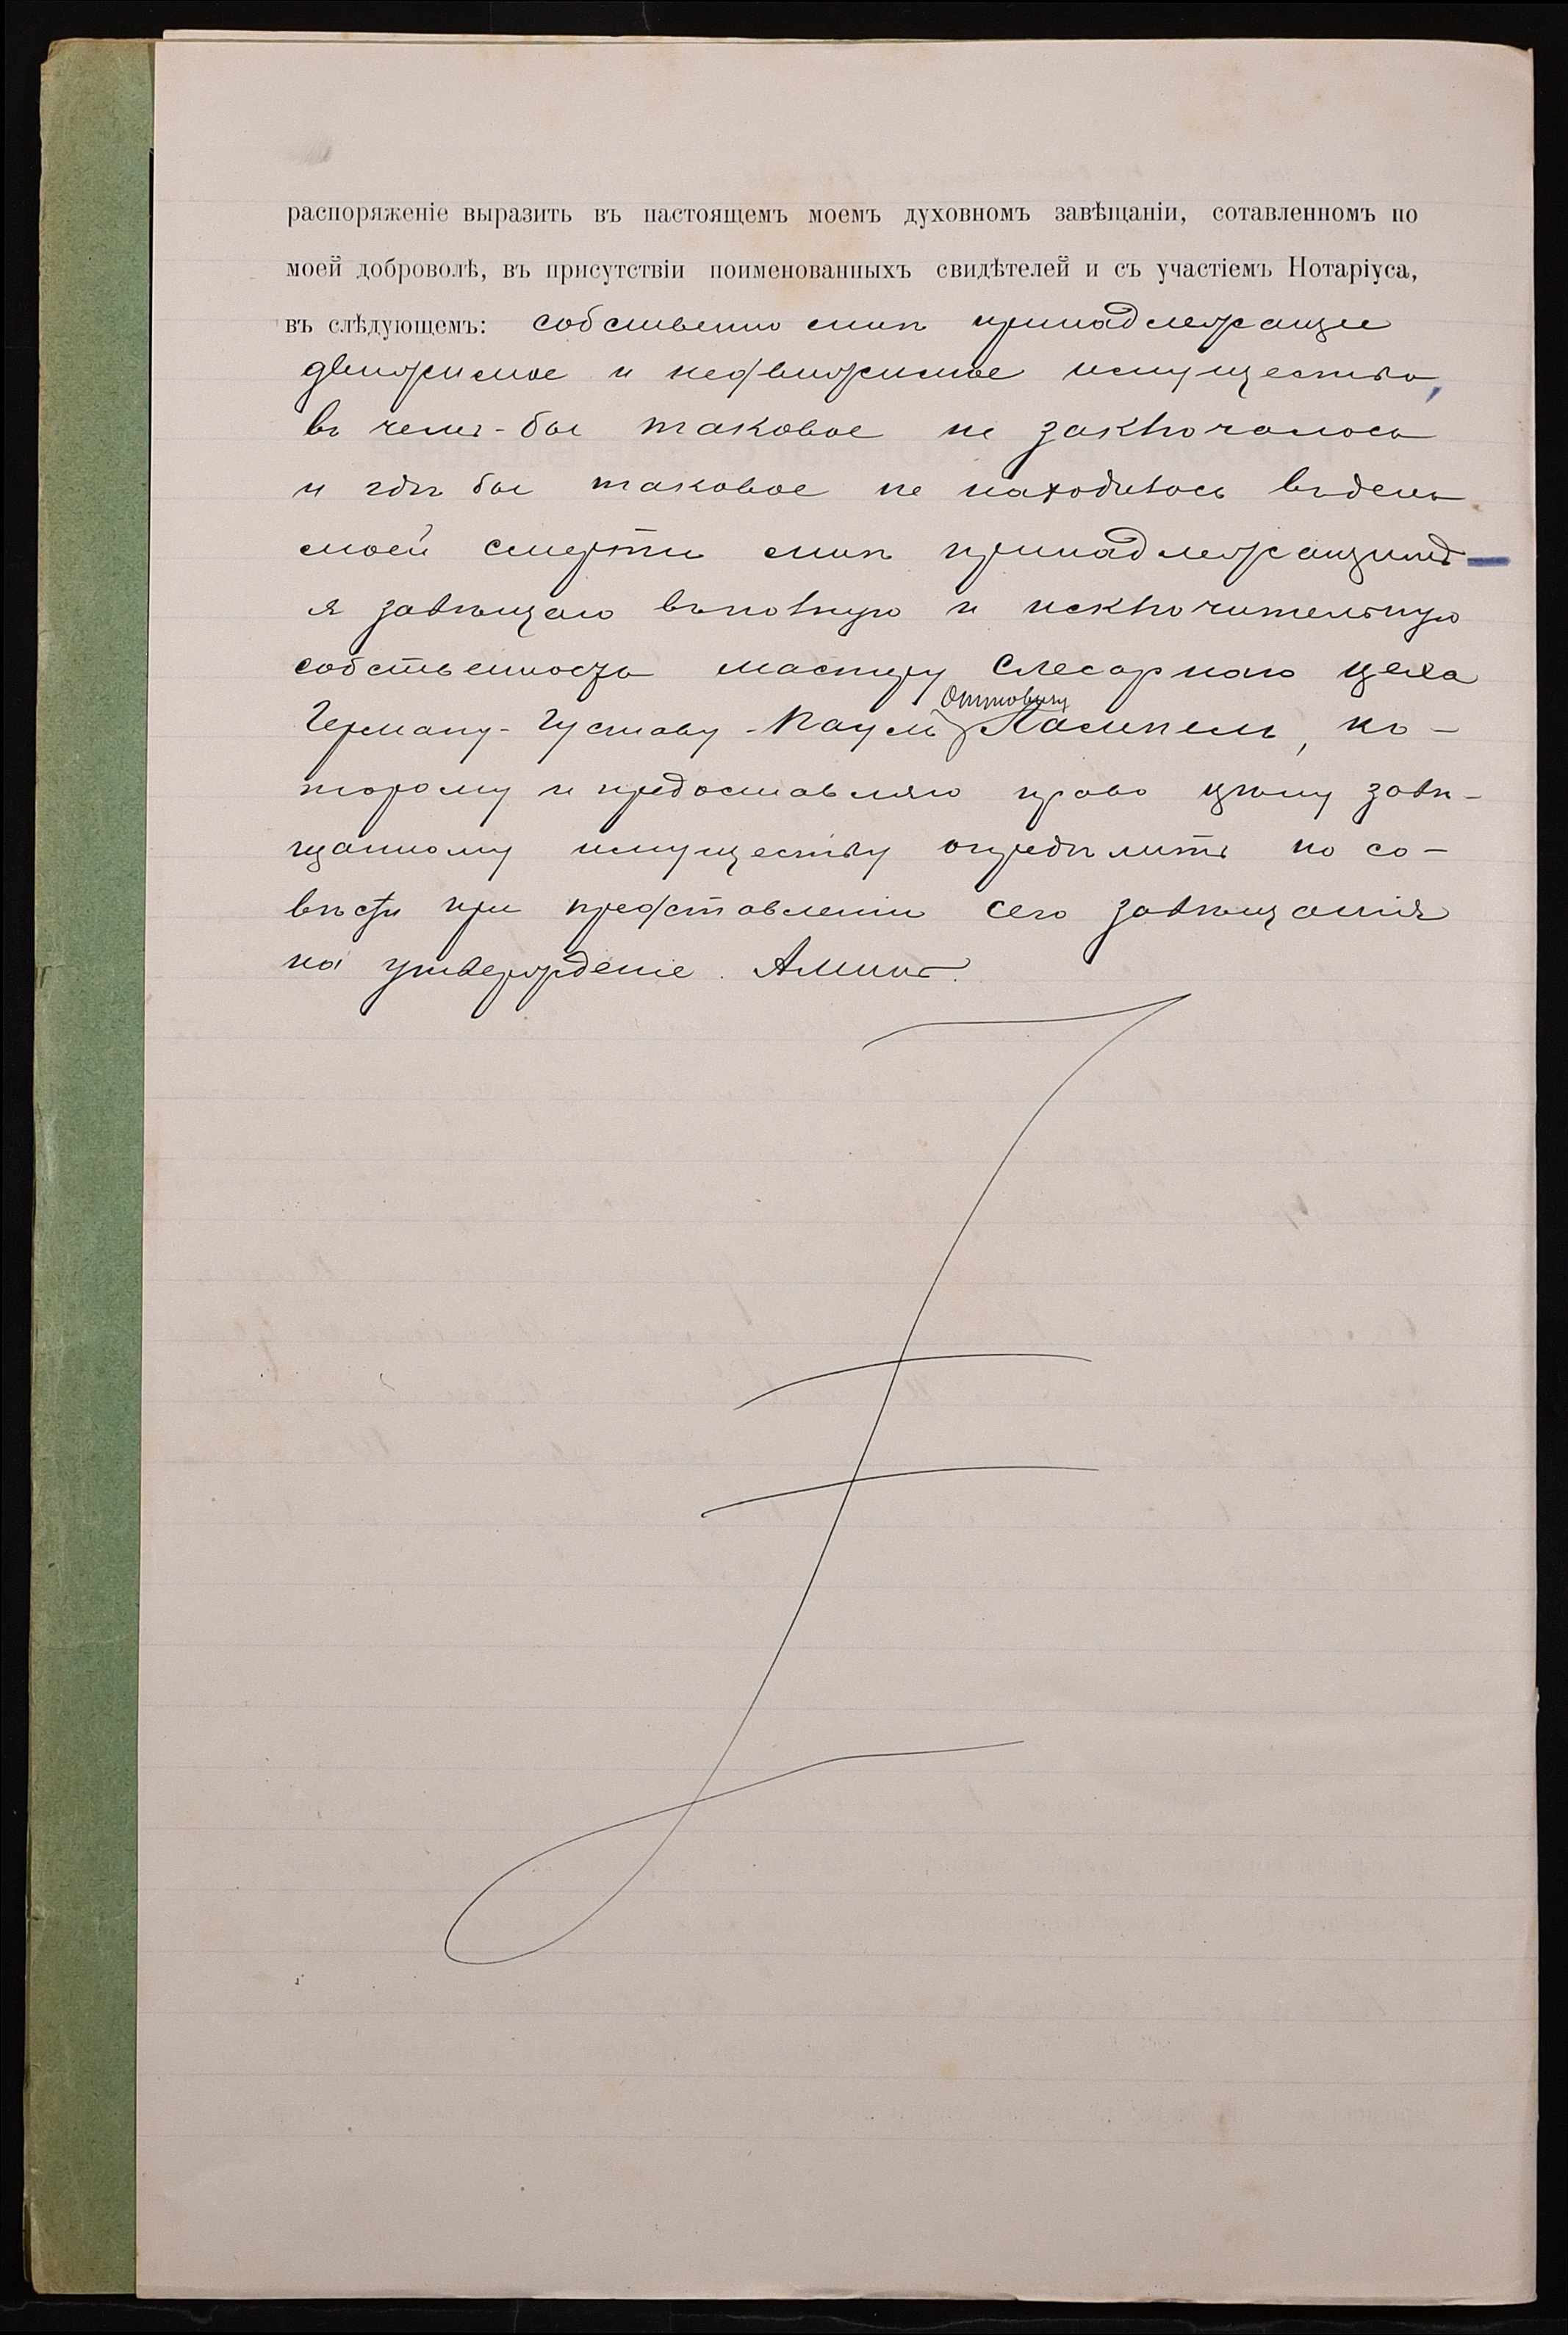 распоряженіе выразить въ настоящемъ моемъ духовномъ завѣщаніи, сотавленномъ по
моей доброволѣ, въ присутствіи поименованныхъ свидѣтелей и съ участіемъ Нотаріуса,
въ слѣдующемъ: собственно мнѣ принадлежащее
движимое и недвижимое имущество,
въ чемъ-бы таковое не заключалось
и гдѣ бы таковое не находилось въ день
моей смерти мнѣ принадлежащимъ —
я завѣщаю въ полную и исключительную
собственность мастеру слесарного цеха
Оттовичу
Герману-Густаву-Пауль Лампель, ко-
торому и предоставляю право цѣну завѣ-
щанному имуществу опредѣлить по со-
вѣсти при представленіи сего завѣщанія
на утвержденіе. Аминь.